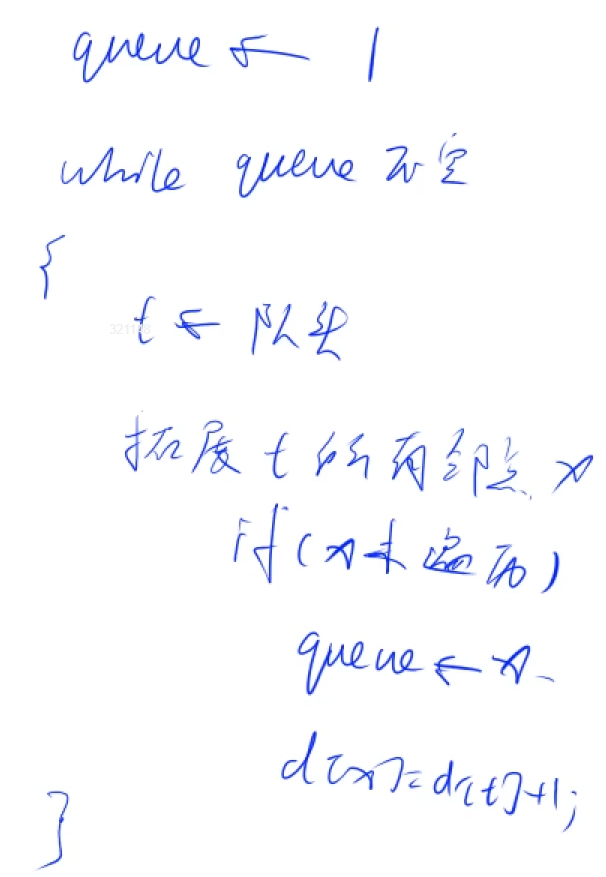 queue ← 1
while queue 不空
{
t ← 队头
拓展 t 的所有邻点 x
if (x未遍历)
queue ← x
d[x] = d[t]+1;
}